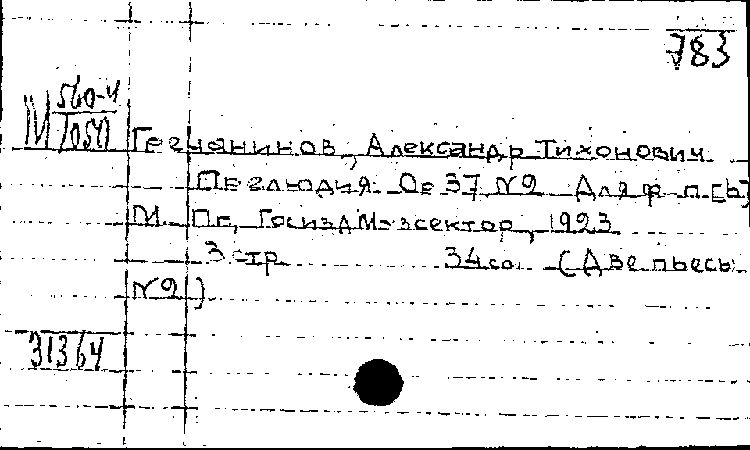 783
М 560-4
1050
Гречанинов, Александр Тихонович
Прелюдия. Ор 37 №2 Для ф-п. [b]
М. Пг, Госизд Музсектор, 1923
3 стр. 34 см (Две пьесы
№2)
31364